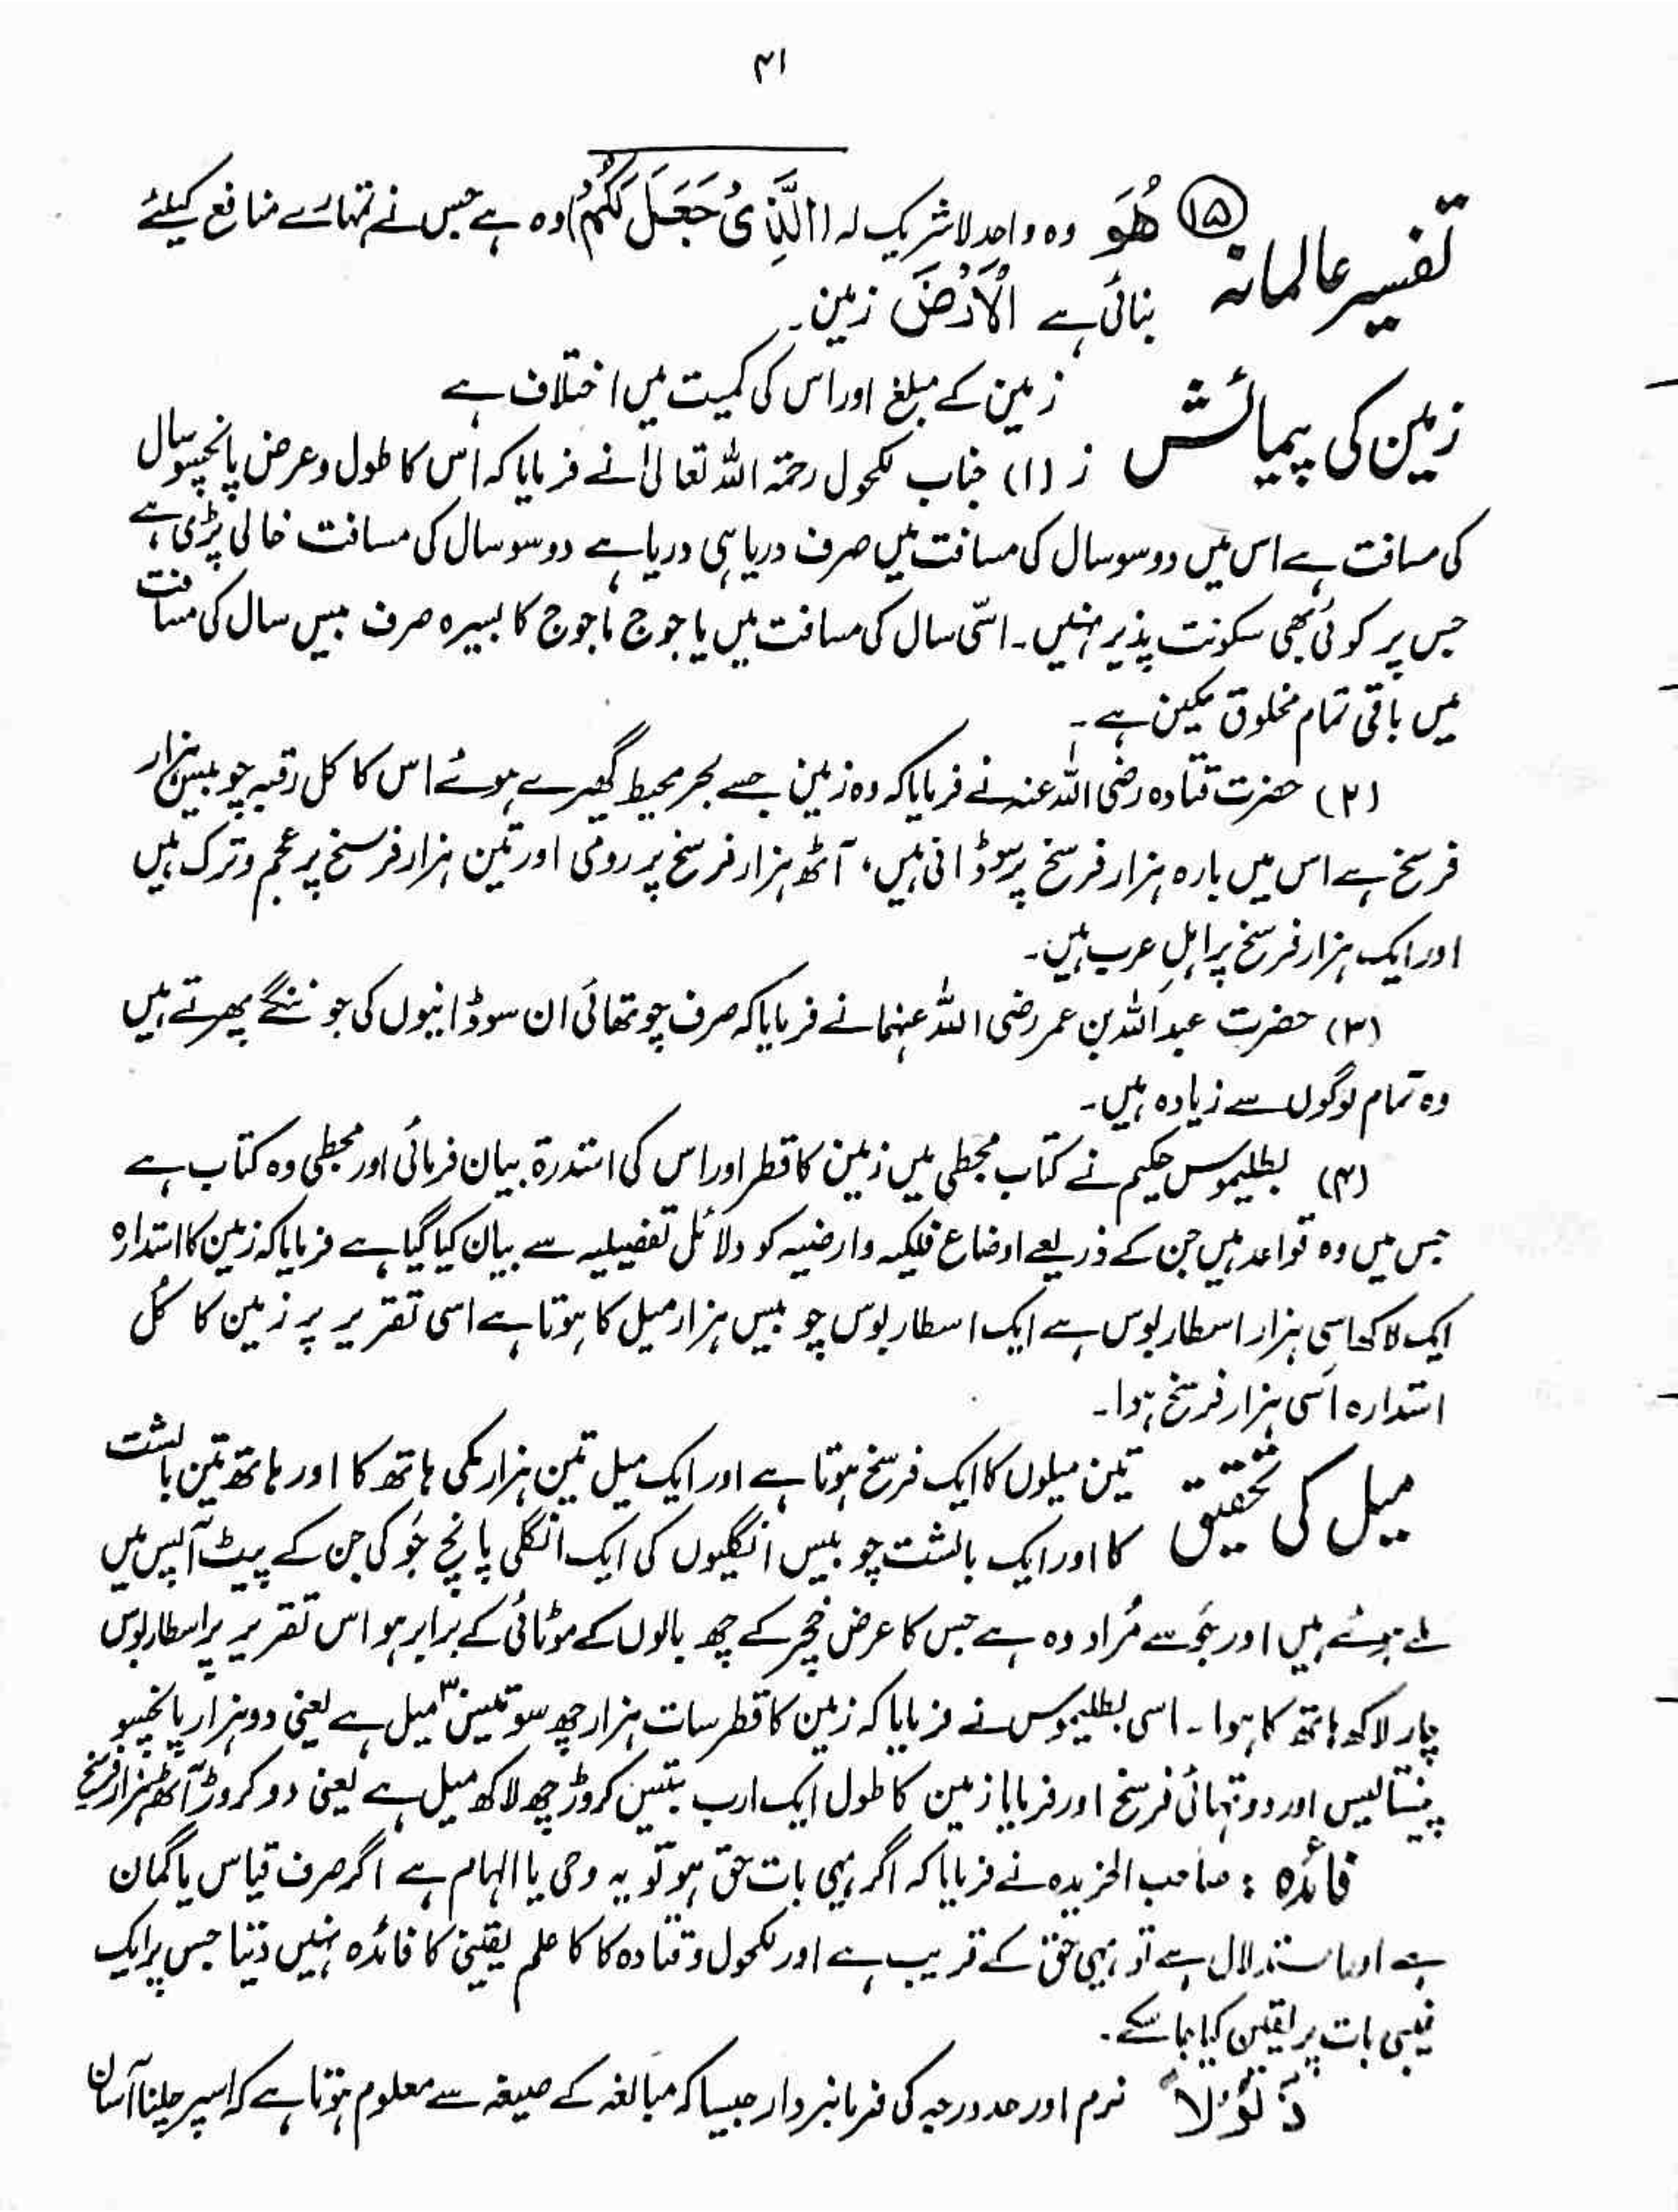 ۴۱
تفسیر عالمانہ ⑮ هُوَ وہ واحد لا شریک لہ (الَّذِیْ جَعَلَ لَكُمُ) وہ ہے جس نے تمہارے منافع کیلئے
بنائی ہے الْاَرْضَ زمین۔
زمین کی پیمائش زمین کے مبلغ اور اس کی کمیت میں اختلاف ہے
ز (۱) جناب مکحول رحمۃ اللہ تعالیٰ نے فرمایا کہ اس کا طول و عرض پانچسو سال
کی مسافت ہے اس میں دو سو سال کی مسافت میں صرف دریا ہی دریا ہے دو سو سال کی مسافت خالی پڑی ہے
جس پر کوئی بھی سکونت پذیر نہیں۔ اسّی سال کی مسافت میں یاجوج ماجوج کا بسیرہ صرف بیس سال کی مسافت
میں باقی تمام مخلوق مکین ہے۔
(۲) حضرت قتادہ رضی اللہ عنہ نے فرمایا کہ وہ زمین جسے بحر محیط گھیرے ہوئے اس کا کل رقبہ چوبیس ہزار
فرسخ ہے اس میں بارہ ہزار فرسخ پر سوڈانی ہیں، آٹھ ہزار فرسخ پر رومی اور تین ہزار فرسخ پر عجم و ترک ہیں
اور ایک ہزار فرسخ پر اہلِ عرب ہیں۔
(۳) حضرت عبداللہ بن عمر رضی اللہ عنہما نے فرمایا کہ صرف چوتھائی ان سوڈانیوں کی جو ننگے پھرتے ہیں
وہ تمام لوگوں سے زیادہ ہیں۔
(۴) بطلیموس حکیم نے کتاب مجطی میں زمین کا قطر اور اس کی استدرۃ بیان فرمائی اور مجطی وہ کتاب ہے
جس میں وہ قواعد ہیں جن کے ذریعے اوضاع فلکیہ وارضیہ کو دلائل تفصیلیہ سے بیان کیا گیا ہے فرمایا کہ زمین کا استدارہ
ایک لاکھ اسی ہزار اسطاربوس ہے ایک اسطاربوس چوبیس ہزار میل کا ہوتا ہے اسی تقریر پر زمین کا کُل
استدارہ اَسی ہزار فرسخ ہوا۔
میل کی تحقیق تین میلوں کا ایک فرسخ ہوتا ہے اور ایک میل تین ہزار مکی ہاتھ کا اور ہاتھ تین بالشت
کا اور ایک بالشت چوبیس انگلیوں کی ایک انگلی پانچ جَو کی جن کے پیٹ آپس میں
ملے ہوئے ہیں اور جَو سے مُراد وہ ہے جس کا عرض خچر کے چھ بالوں کے موٹائی کے برابر ہو اس تقریر پر اسطاربوس
چار لاکھ ہاتھ کا ہوا۔ اسی بطلیموس نے فرمایا کہ زمین کا قطر سات ہزار چھ سو تیس۳ میل ہے یعنی دو ہزار پانچسو
پینتالیس اور دو تہائی فرسخ اور فرمایا زمین کا طول ایک ارب بتیس کروڑ چھ لاکھ میل ہے یعنی دو کروڑ آٹھ ہزار فرسخ
فائدہ : صاحب الخریدہ نے فرمایا کہ اگر یہی بات حق ہو تو یہ وحی یا الہام ہے اگر صرف قیاس یا گمان
ہے اور استدلال ہے تو یہی حق کے قریب ہے اور مکحول و قتادہ کا کا علم یقینی کا فائدہ نہیں دیتا جس پر ایک
غیبی بات پر یقین کیا جا سکے۔
ذَلُوْلًا نرم اور حد درجہ کی فرمانبردار جیسا کہ مبالغہ کے صیغہ سے معلوم ہوتا ہے کہ اسپر چلنا آسان